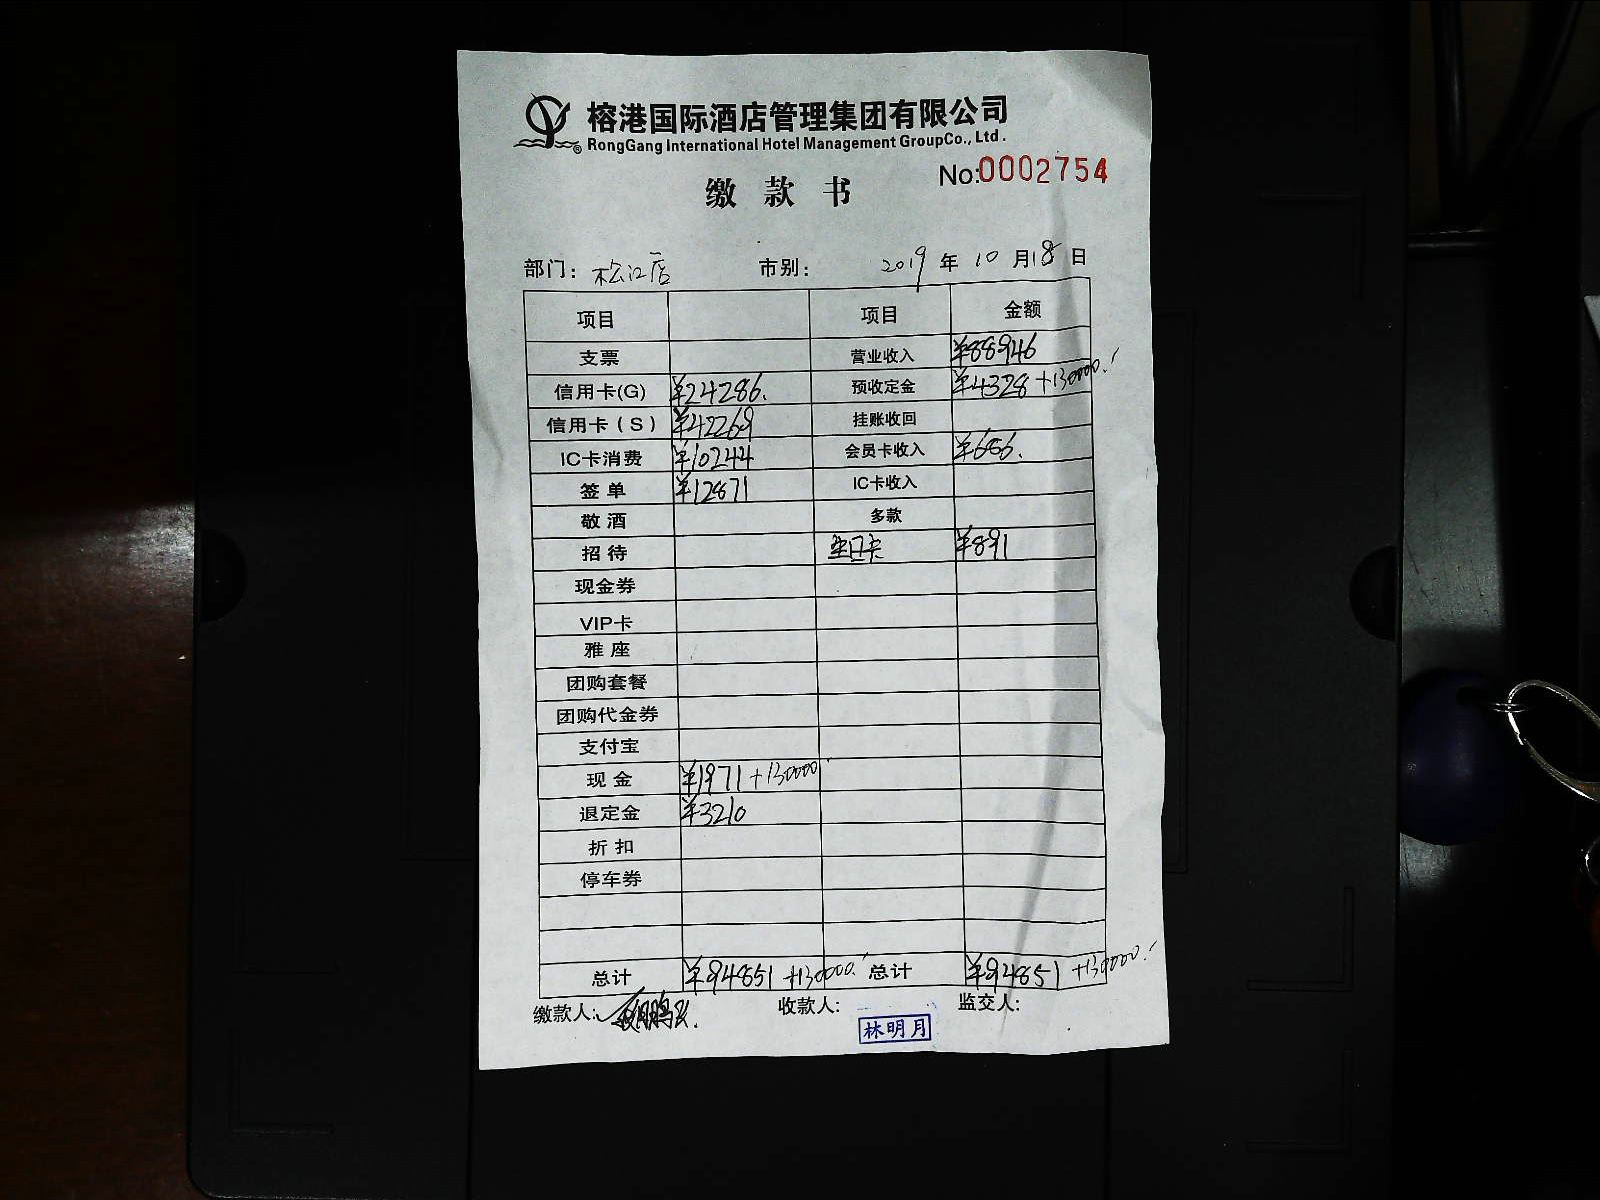 榕港国际酒店管理集团有限公司
RongGang International Hotel Management GroupCo., Ltd.
No:0002754
缴 款 书
部门: 松江店 市别: 2019 年 10 月 18 日
项目 项目 金额
支票 营业收入 ¥88946
信用卡(G) ¥24286. 预收定金 ¥4328 +130000.
信用卡(S) ¥42269 挂账收回
IC卡消费 ¥10244 会员卡收入 ¥686.
签 单 ¥12871 IC卡收入
敬 酒 多款
招 待 生日卡 ¥891
现金券
VIP卡
雅 座
团购套餐
团购代金券
支付宝
现 金 ¥1971 +130000.
退定金 ¥3210
折 扣
停车券
总计 ¥94851 +130000. 总计 ¥94851 +130000.
缴款人: 收款人: 监交人:
林明月